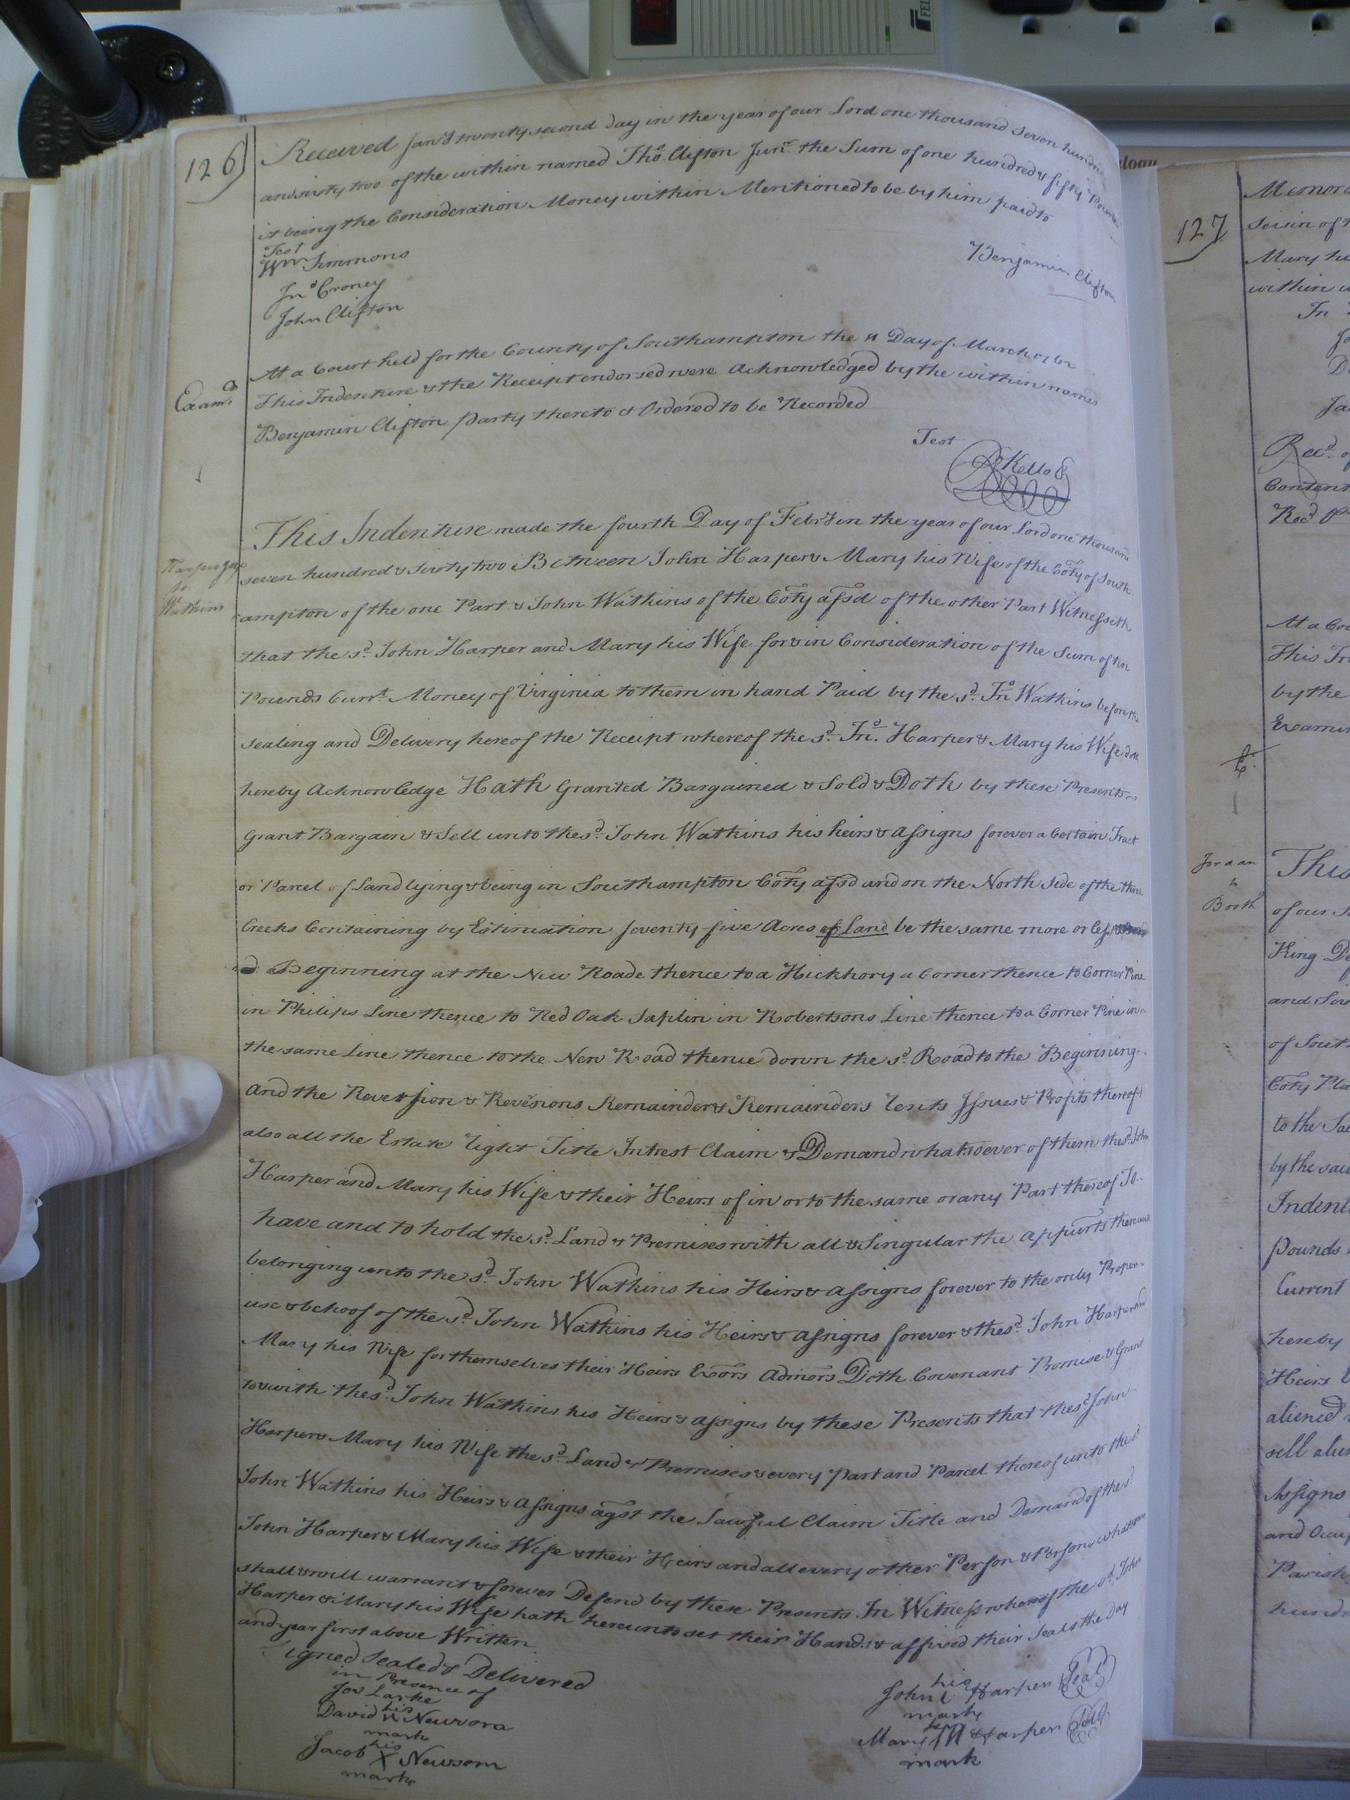 126
Received Jan'y twenty second day in the year of our Lord one thousand seven hundred
and sixty two of the within named Tho.s Clifton Jun.r the Sum of one hundred & fifty Pounds
it being the Consideration Money within Mentioned to be by him paid to
Test
Wm Simmons
Benjamin Clifton
Jn.o Croney
John Clifton
At a Court held for the County of Southampton the 11 Day of March 1762
Exam.d
This Indenture & the Receipt endorsed were Acknowledged by the within named
Benjamin Clifton party thereto & Ordered to be Recorded
Test
R Kello
This Indenture made the fourth Day of Feb'y in the year of our Lord one thousand
Harper &
to
Watkins
seven hundred & sixty two Between John Harper & Mary his Wife of the Coty of South
ampton of the one Part & John Watkins of the Coty afsd of the other Part Witnesseth
that the s.d John Harper and Mary his Wife for & in Consideration of the Sum of ten
Pounds Curr.t Money of Virginia to them in hand Paid by the s.d Jn.o Watkins before the
sealing and Delivery hereof the Receipt whereof the s.d Jn.o Harper & Mary his Wife doth
hereby Acknowledge Hath Granted Bargained & Sold & Doth by these Presents
Grant Bargain & Sell unto the s.d John Watkins his heirs & assigns forever a Certain Tract
or Parcel of Land lying & being in Southampton Coty afsd and on the North Side of the three
Creeks Containing by Estimation seventy five Acres of Land be the same more or less
Beginning at the New Roade thence to a Hickhory a Corner thence to Corner Pine
in Philips Line thence to Red Oak Saplin in Robertsons Line thence to a Corner Pine in
the same Line thence to the New Road thence down the s.d Road to the Beginning
And the Revertion & Revesions Remainder & Remainders Rents Issues & Profits thereof
also all the Estate Right Title Intrest Claim & Demand whatsoever of them the s.d John
Harper and Mary his Wife & their Heirs of in or to the same or any Part thereof To
have and to hold the s.d Land & Premises with all & Singular the appurts thereunto
belonging unto the s.d John Watkins his Heirs & assigns forever to the only Proper
use & behoof of the s.d John Watkins his Heirs & assigns forever & the s.d John Harper and
Mary his Wife for themselves their Heirs Exors Adminrs Doth Covenant Promise & Grant
to & with the s.d John Watkins his Heirs & assigns by these Presents that the s.d John
Harper & Mary his Wife the s.d Land & Premises & every Part and Parcel thereof unto the s.d
John Watkins his Heirs & assigns agst the Lawful Claim Title and Demand of the s.d
John Harper & Mary his Wife & their Heirs and all every other Person & Persons whatsoever
shall & will warrant & forever Defend by these Presents In Witness whereof the s.d John
Harper & Mary his Wife hath hereunto set their Hands & affixed their Seals the Day
and year first above Written
Signed Sealed & Delivered
in Presence of
Jos Larke
David his Newsom
mark
Jacob his X Newsom
mark
John his Harper Seal
mark
Mary her M Harper Seal
mark
127
seisin of
Mary
within
In
Rec.d
Content
Rec.d
At a
This In
by the
Examin
Jordan
to
Booth
This
of our
King
and
of South
Coty
to the
by the
Indent
pounds
Current
hereby
Heirs
aliened
sell
Assigns
and Occu
Parish
hundr